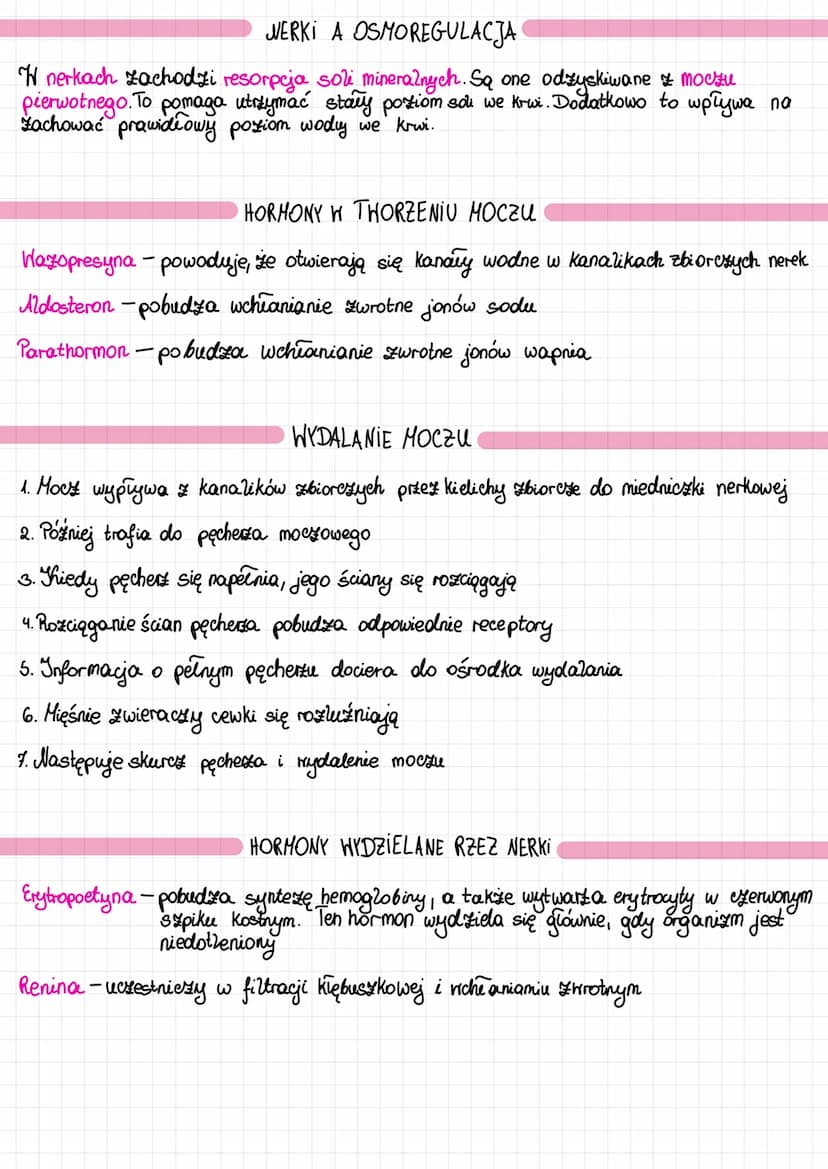 NERKI A OSMOREGULACJA
W nerkach zachodzi resorpcja soli mineralnych. Są one odzyskiwane z moczu
pierwotnego. To pomaga utrzymać stały poziom soli we krwi. Dodatkowo to wpływa na
zachować prawidłowy poziom wody we krwi.
HORMONY W TWORZENIU MOCZU
Wazopresyna – powoduje, że otwierają się kanały wodne w kanalikach zbiorczych nerek
Aldosteron – pobudza wchłanianie zwrotne jonów sodu
Parathormon – pobudza wchłanianie zwrotne jonów wapnia
WYDALANIE MOCZU
1. Mocz wypływa z kanalików zbiorczych przez kielichy zbiorcze do miedniczki nerkowej
2. Później trafia do pęcherza moczowego
3. Kiedy pęcherz się napełnia, jego ściany się rozciągają
4. Rozciąganie ścian pęcherza pobudza odpowiednie receptory
5. Informacja o pełnym pęcherzu dociera do ośrodka wydalania
6. Mięśnie zwieraczy cewki się rozluźniają
7. Następuje skurcz pęcherza i wydalenie moczu
HORMONY WYDZIELANE RZEZ NERKI
Erytropoetyna – pobudza syntezę hemoglobiny, a także wytwarza erytrocyty w czerwonym
szpiku kostnym. Ten hormon wydziela się głównie, gdy organizm jest
niedotleniony
Renina – uczestniczy w filtracji kłębuszkowej i wchłanianiu zwrotnym